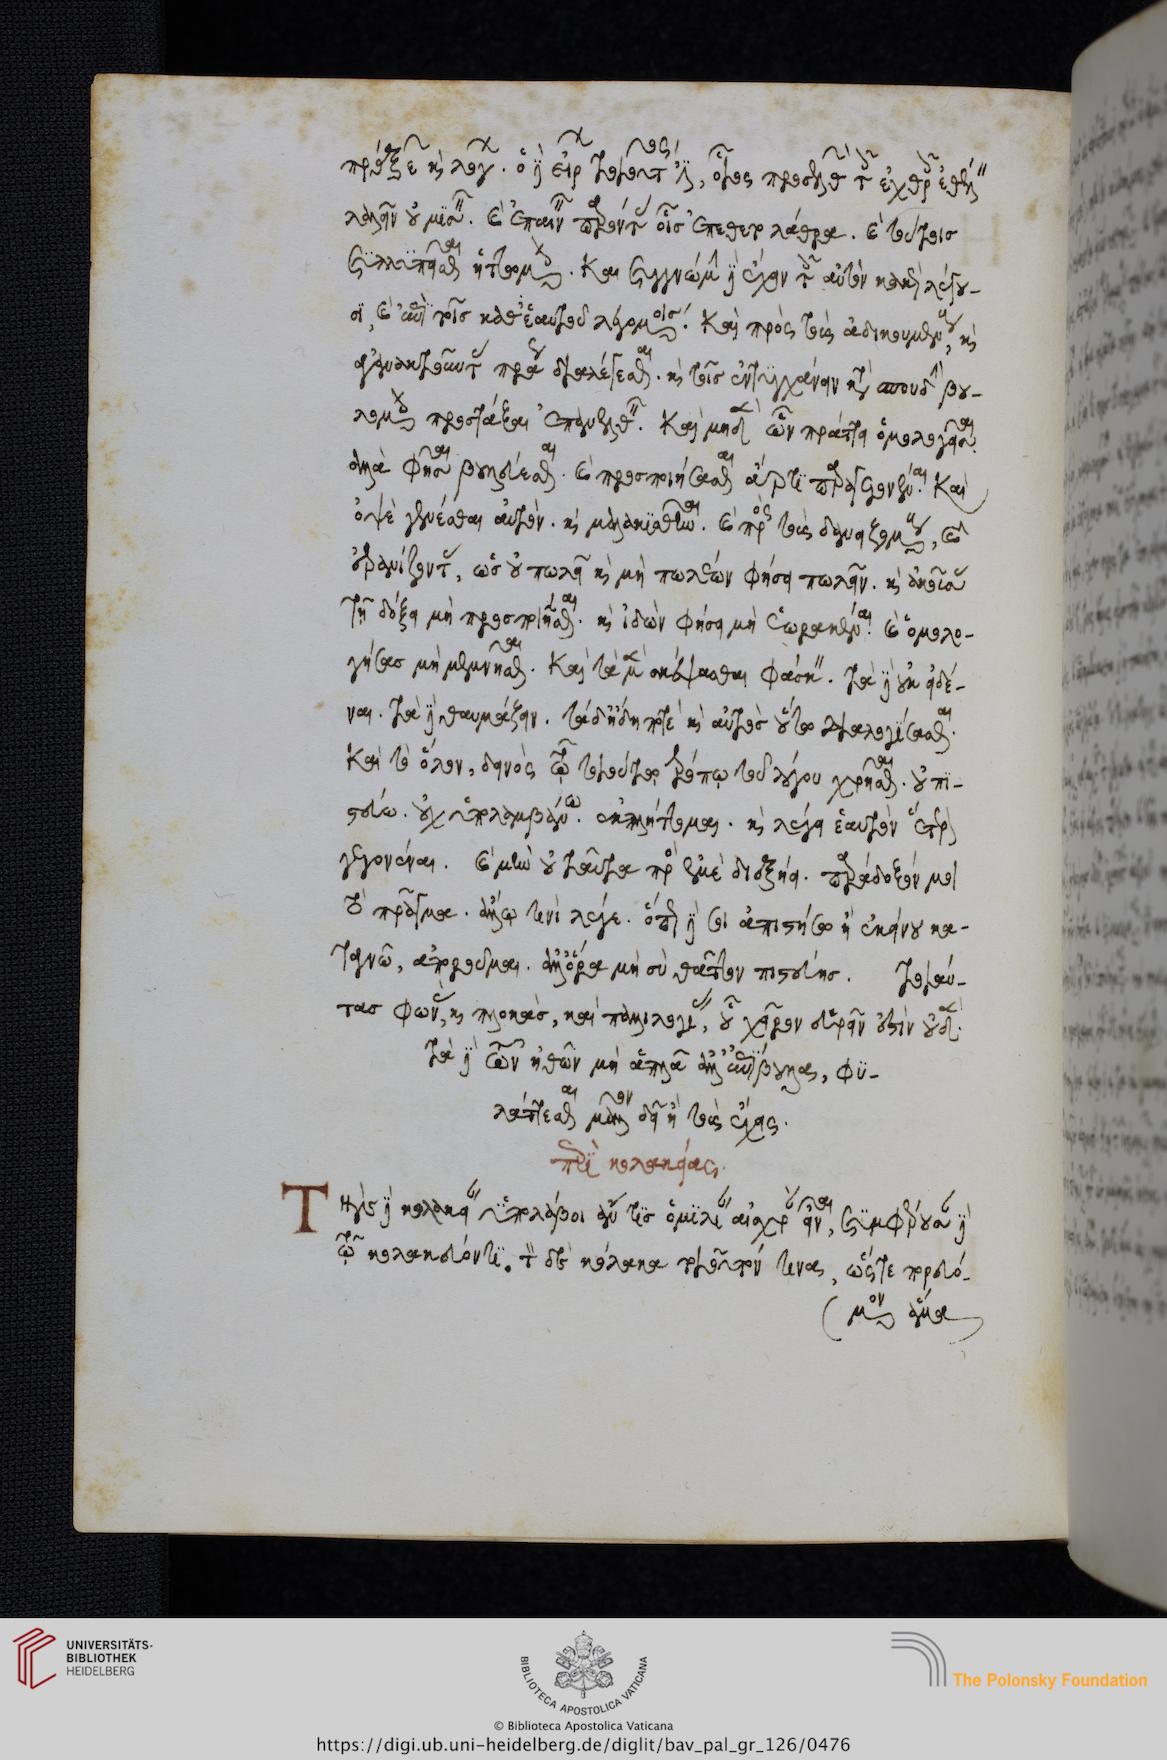 πράξεων καὶ λόγων. ὁ δὲ εἴρων τοιοῦτός τις, οἷος προσελθὼν τοῖς ἐχθροῖς ἐθέλειν
λαλεῖν οὐ μισεῖν. καὶ ἐπαινεῖν παρόντας οἷς ἐπέθετο λάθρα. καὶ τούτοις
συλλυπεῖσθαι ἡττωμένοις. Καὶ συγγνώμην δὲ ἔχειν τοῖς αὐτὸν κακῶς λέγου-
σι, καὶ ἐπὶ τοῖς καθ' ἑαυτοῦ λεγομένοις. Καὶ πρὸς τοὺς ἀδικουμένους, καὶ
ἀγανακτοῦντας πράως διαλέγεσθαι. καὶ τοῖς ἐντυγχάνειν κατὰ σπουδὴν βου-
λομένοις προστάξαι ἐπανελθεῖν. Καὶ μηδὲν ὧν πράττει ὁμολογῆσαι.
ἀλλὰ φῆσαι βουλεύεσθαι. καὶ προσποιήσασθαι ἄρτι παραγεγονέναι. Καὶ
ὀψὲ γενέσθαι αὐτὸν. καὶ μαλακισθῆναι. καὶ πρὸς τοὺς δανειζομένους, καὶ
ἐρανίζοντας, ὡς οὐ πωλεῖ καὶ μὴ πωλῶν φήσει πωλεῖν. καὶ ἀκούσας
τι δόξει μὴ προσποιεῖσθαι. καὶ ἰδὼν φήσει μὴ ἑωρακέναι. καὶ ὁμολο-
γήσας μὴ μεμνῆσθαι. Καὶ τὰ μὲν σκέψασθαι φάσκειν. τὰ δὲ οὐκ εἰδέ-
ναι. τὰ δὲ θαυμάζειν. τὰ δ' ἤδη ποτὲ καὶ αὐτὸς οὕτω διαλογίσασθαι.
Καὶ τὸ ὅλον, δεινὸς τῷ τοιούτῳ τρόπῳ τοῦ λόγου χρῆσθαι. οὐ πι-
στεύω. οὐχ ὑπολαμβάνω. ἐκπλήττομαι. καὶ λέγει ἑαυτὸν ἕτερον
γεγονέναι. καὶ μὴν οὐ ταῦτα πρὸς ἐμὲ διεξῄει. παράδοξόν μοι
τὸ πρᾶγμα. ἄλλῳ τινὶ λέγε. ὅπως δὲ σοι ἀπιστήσω ἢ ἐκείνου κα-
ταγνῶ, ἀποροῦμαι. ἀλλ' ὅρα μὴ σὺ θᾶττον πιστεύῃς. τοιαύ-
τας φωνὰς, καὶ πλοκὰς, καὶ παλιλλογίας, οὗ χεῖρον εὑρεῖν ἐστὶν οὐδέν.
τὰ δὲ τῶν ἠθῶν μὴ ἁπλᾶ ἀλλ' ἐπίβουλα, φυ-
λάττεσθαι μᾶλλον δεῖ ἢ τοὺς ἔχεις.
περὶ κολακείας
Τὴν δὲ κολακείαν ὑπολάβοι ἄν τις ὁμιλίαν αἰσχρὰν εἶναι, συμφέρουσαν δὲ
τῷ κολακεύοντι. τὸν δὲ κόλακα τοιοῦτόν τινα, ὥστε πορευό-
μενον ἅμα
UNIVERSITÄTS-
BIBLIOTHEK
HEIDELBERG
BIBLIOTECA APOSTOLICA VATICANA
The Polonsky Foundation
© Biblioteca Apostolica Vaticana
https://digi.ub.uni-heidelberg.de/diglit/bav_pal_gr_126/0476